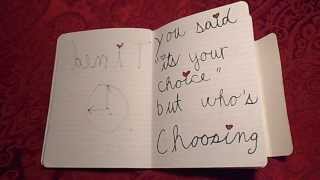 you said
"its your
choice"
but who's
Choosing